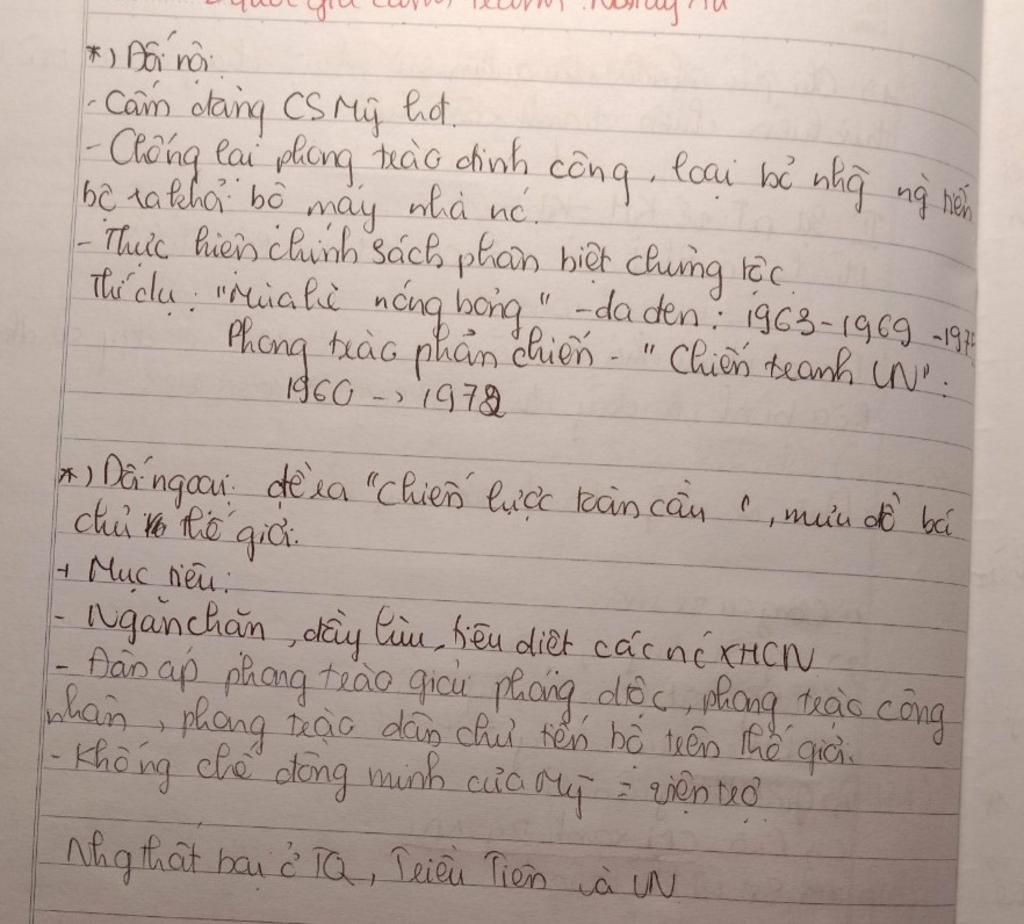 *) Đối nội:
- Cấm đảng CS Mỹ hđ.
- Chống lại phong trào đình công, loại bỏ nhg ng tiến
bộ ra khỏi bộ máy nhà nc.
- Thực hiện chính sách phân biệt chủng tộc
Thí dụ: "Mùa hè nóng bỏng" - da đen: 1963-1969-197
Phong trào phản chiến - "Chiến tranh VN".
1960 -> 1972
*) Đối ngoại: đề ra "chiến lược toàn cầu", mưu đồ bá
chủ thế giới.
+ Mục tiêu:
- Ngăn chặn, đẩy lùi, tiêu diệt các nc XHCN
- Đàn áp phong trào giải phóng dtộc, phong trào công
nhân, phong trào dân chủ tiến bộ trên thế giới.
- Khống chế đồng minh của Mỹ = viện trợ
Nhg thất bại ở TQ, Triều Tiên và VN